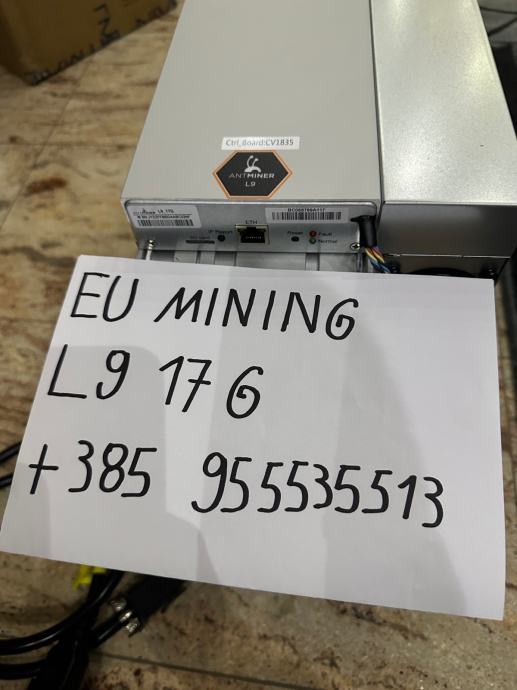 Ctrl_Board:CV1835
ANTMINER
L9
L9 17G
ETH
IP Report
Reset
Fault
Normal
EU MINING
L9 17 G
+385 955535513